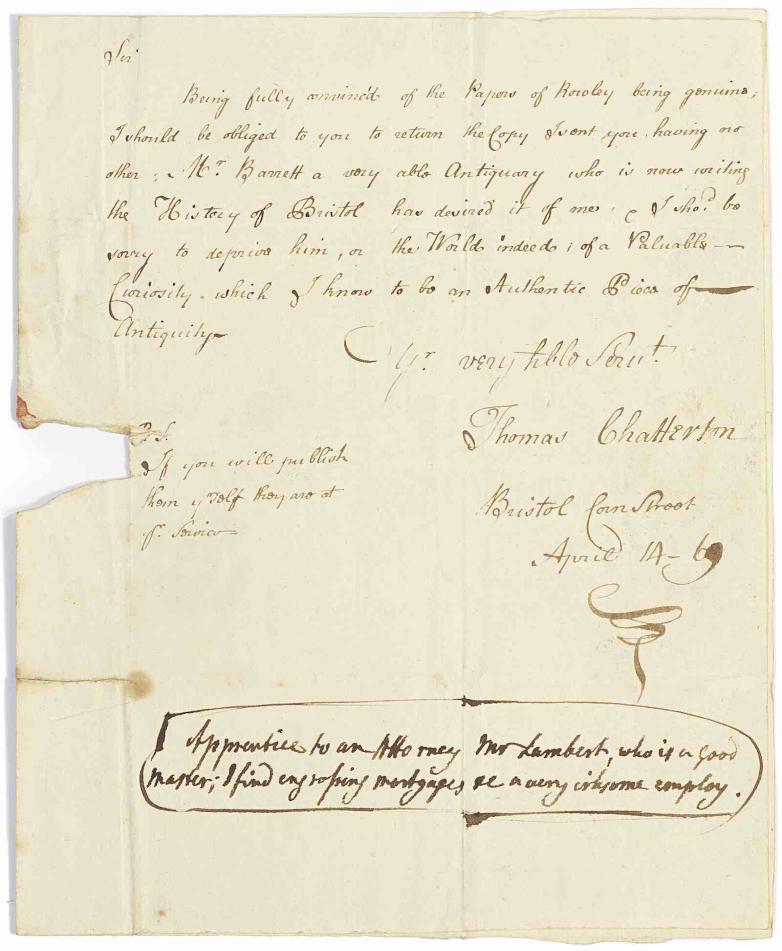 Sir
Being fully convinc'd of the Papers of Rowley being genuine,
I should be obliged to you to return the Copy I sent you, having no
other; Mr. Barrett a very able Antiquary who is now writing
the History of Bristol has desired it of me, & I sho'd be
sorry to deprive him, or the World indeed, of a Valuable
Curiosity, which I know to be an Authentic Piece of
Antiquity
Yr. very hble Servt.
Thomas Chatterton
P.S.
If you will publish
them y'rself they are at
yr. Service
Bristol Corn Street
April 14 - 69
Apprentice to an Attorney Mr Lambert, who is a good
master; I find engrossing mortgages &c a very irksome employ.